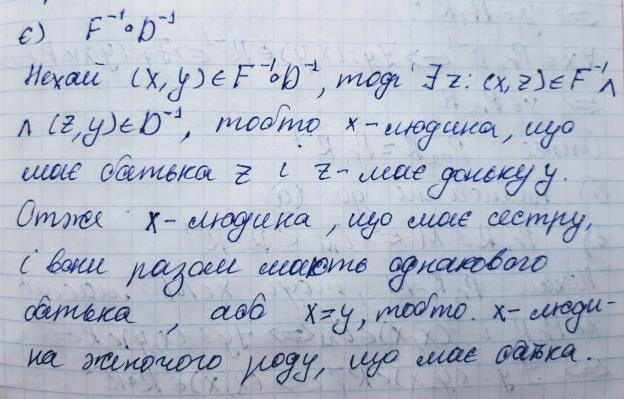 є) F⁻¹∘D⁻¹
Нехай (x,y)∈F⁻¹∘D⁻¹, тоді ∃z: (x,z)∈F⁻¹∧
∧ (z,y)∈D⁻¹, тобто x-людина, що
має батька z і z-має доньку y.
Отже x-людина, що має сестру,
і вони разом мають однакового
батька, або x=y, тобто. x-люди-
на жіночого роду, що має батька.